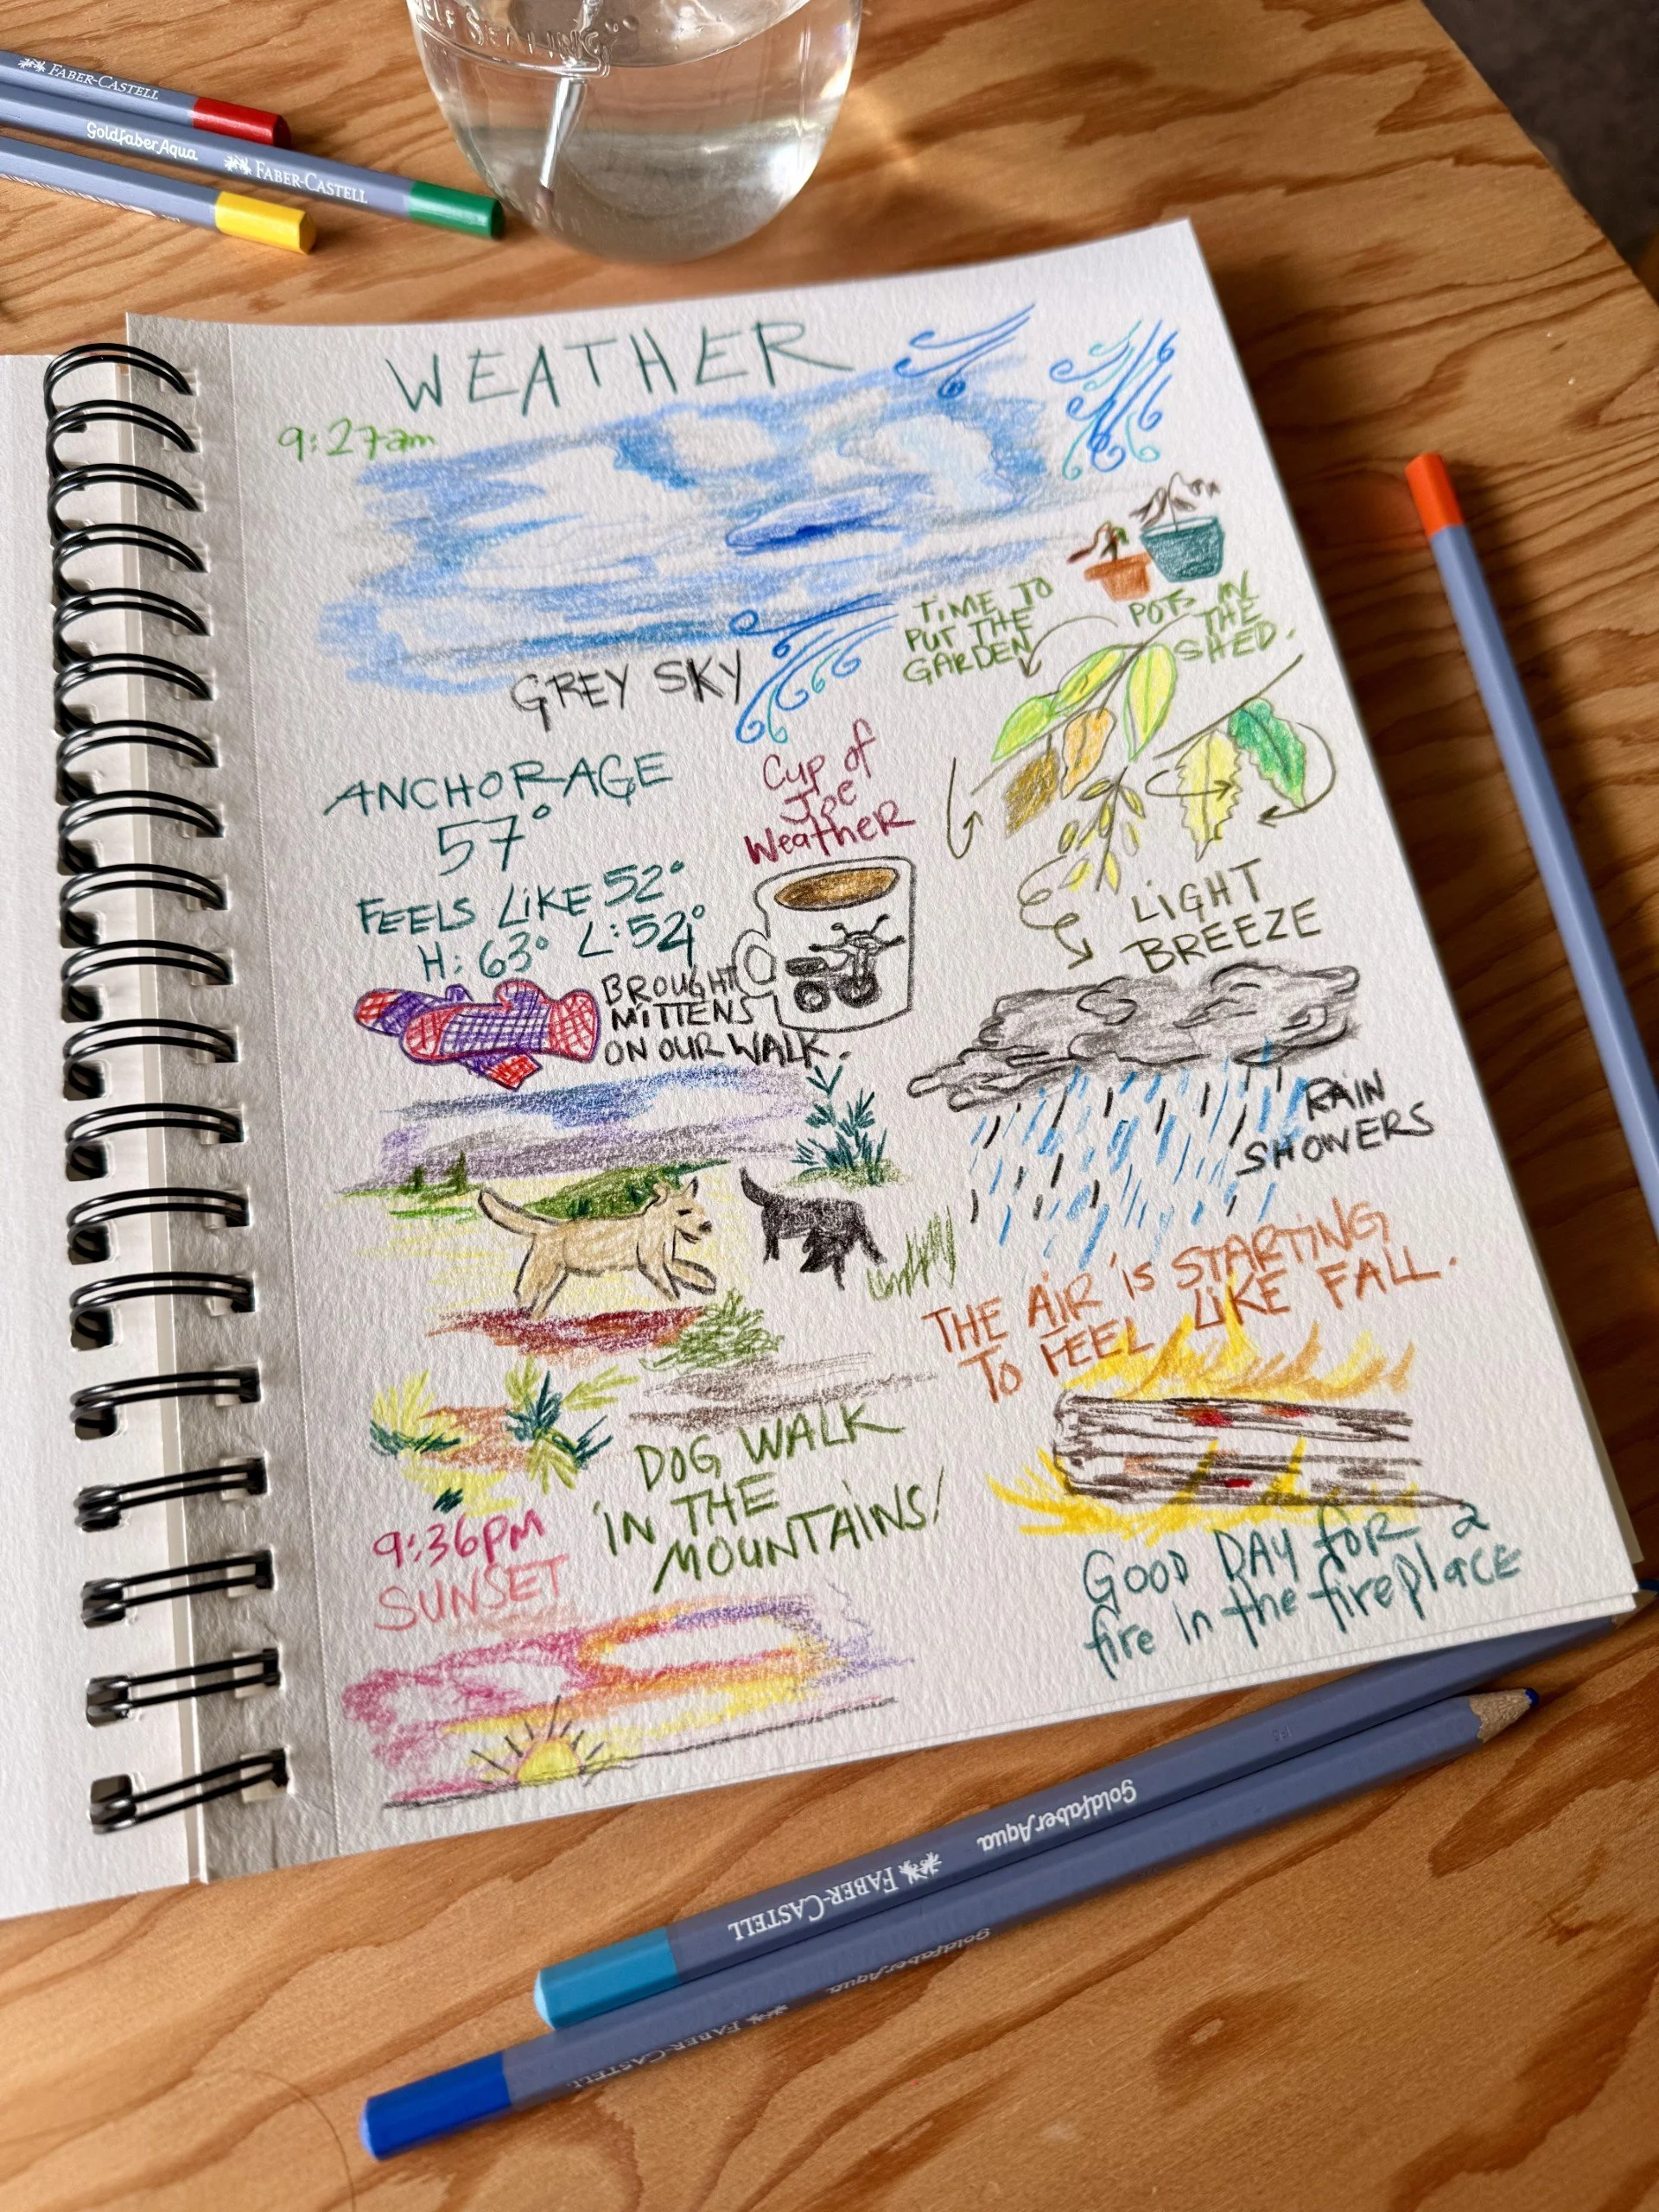 SELF SEALING
FABER-CASTELL
GoldfaberAqua FABER-CASTELL
WEATHER
9:27am
GREY SKY
TIME TO
PUT THE
GARDEN
POTS IN
THE
SHED.
ANCHORAGE
57°
FEELS LIKE 52°
H: 63° L: 54°
Cup of
Joe
Weather
BROUGHT
MITTENS
ON OUR WALK.
LIGHT
BREEZE
RAIN
SHOWERS
THE AIR IS STARTING
TO FEEL LIKE FALL.
DOG WALK
IN THE
MOUNTAINS!
9:36pm
SUNSET
GOOD DAY for a
fire in the fireplace
GoldfaberAqua
FABER-CASTELL
GoldfaberAqua
FABER-CASTELL